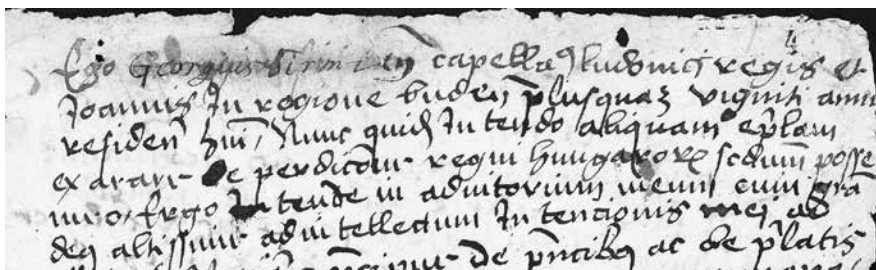 Ego Georgius Sirimien̄ capellaꝰ ludovici regis et
Joannis In regione buden̄ p̄lusquaꝫ viginti annis
residen̄ hui, Nunc quid Intendo aliquam ep̄lam
exarare de perdicōne regni hungaroꝝ scdum posse
meo. Ergo Intende in adiutorium meum cum grā
dei altissimi ad intellectum Intencionis mei ad
de p̄ncibꝰ ac de p̄latis